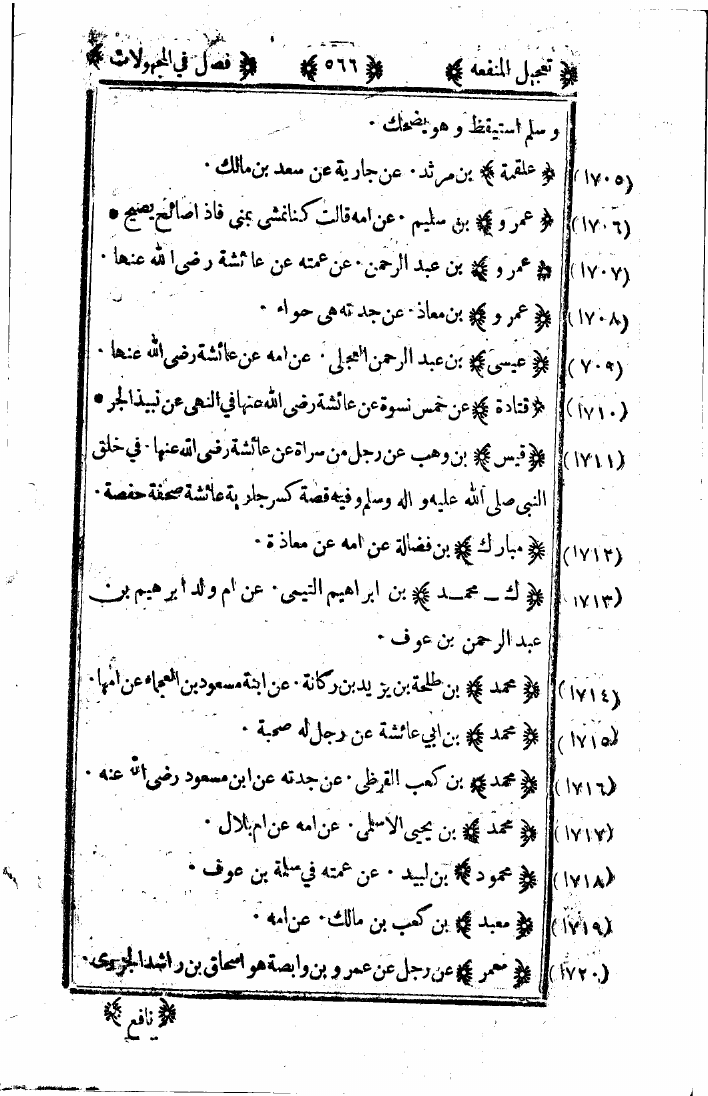 ﴿ تعجيل المنفعه ﴾ ﴿ ٥٦٦ ﴾ ﴿ فصل في المجهولات ﴾
و سلم استيقظ و هو يضحك ٠
(١٧٠٥) ﴿ علقمة ﴾ بن مرثد ٠ عن جارية عن سعد بن مالك ٠
(١٧٠٦) ﴿ عمرو ﴾ بن سليم ٠ عن امه قالت كنا نمشى بمنى فاذا صائح يصيح ٠
(١٧٠٧) ﴿ عمرو ﴾ بن عبد الرحمن ٠ عن عمته عن عائشة رضى الله عنها ٠
(١٧٠٨) ﴿ عمرو ﴾ بن معاذ ٠ عن جدته هى حواء ٠
(٧٠٩) ﴿ عيسى ﴾ بن عبد الرحمن البجلى ٠ عن امه عن عائشة رضى الله عنها ٠
(١٧١٠) ﴿ قتادة ﴾ عن خمس نسوة عن عائشة رضى الله عنها في النهى عن نبيذ الجر ٠
(١٧١١) ﴿ قيس ﴾ بن وهب عن رجل من سراة عن عائشة رضى الله عنها ٠ في خلق
النبى صلى الله عليه و اله وسلم و فيه قصة كسر جارية عائشة صحفة حفصة ٠
(١٧١٢) ﴿ مبارك ﴾ بن فضالة عن امه عن معاذة ٠
(١٧١٣) ﴿ ك ــ محمد ﴾ بن ابراهيم التيمى ٠ عن ام ولد ابرهيم بن
عبد الرحمن بن عوف ٠
(١٧١٤) ﴿ محمد ﴾ بن طلحة بن يزيد بن ركانة ٠ عن ابنة مسعود بن العجماء عن امها ٠
(١٧١٥) ﴿ محمد ﴾ بن ابي عائشة عن رجل له صحبة ٠
(١٧١٦) ﴿ محمد ﴾ بن كعب القرظى ٠ عن جدته عن ابن مسعود رضى الله عنه ٠
(١٧١٧) ﴿ محمد ﴾ بن يحيى الاسلمى ٠ عن امه عن ام بلال ٠
(١٧١٨) ﴿ محمود ﴾ بن لبيد ٠ عن عمته في سلمة بن عوف ٠
(١٧١٩) ﴿ معبد ﴾ بن كعب بن مالك ٠ عن امه ٠
(١٧٢٠) ﴿ معمر ﴾ عن رجل عن عمرو بن وابصة هو اسحاق بن راشد الجزرى ٠
﴿ نافع ﴾